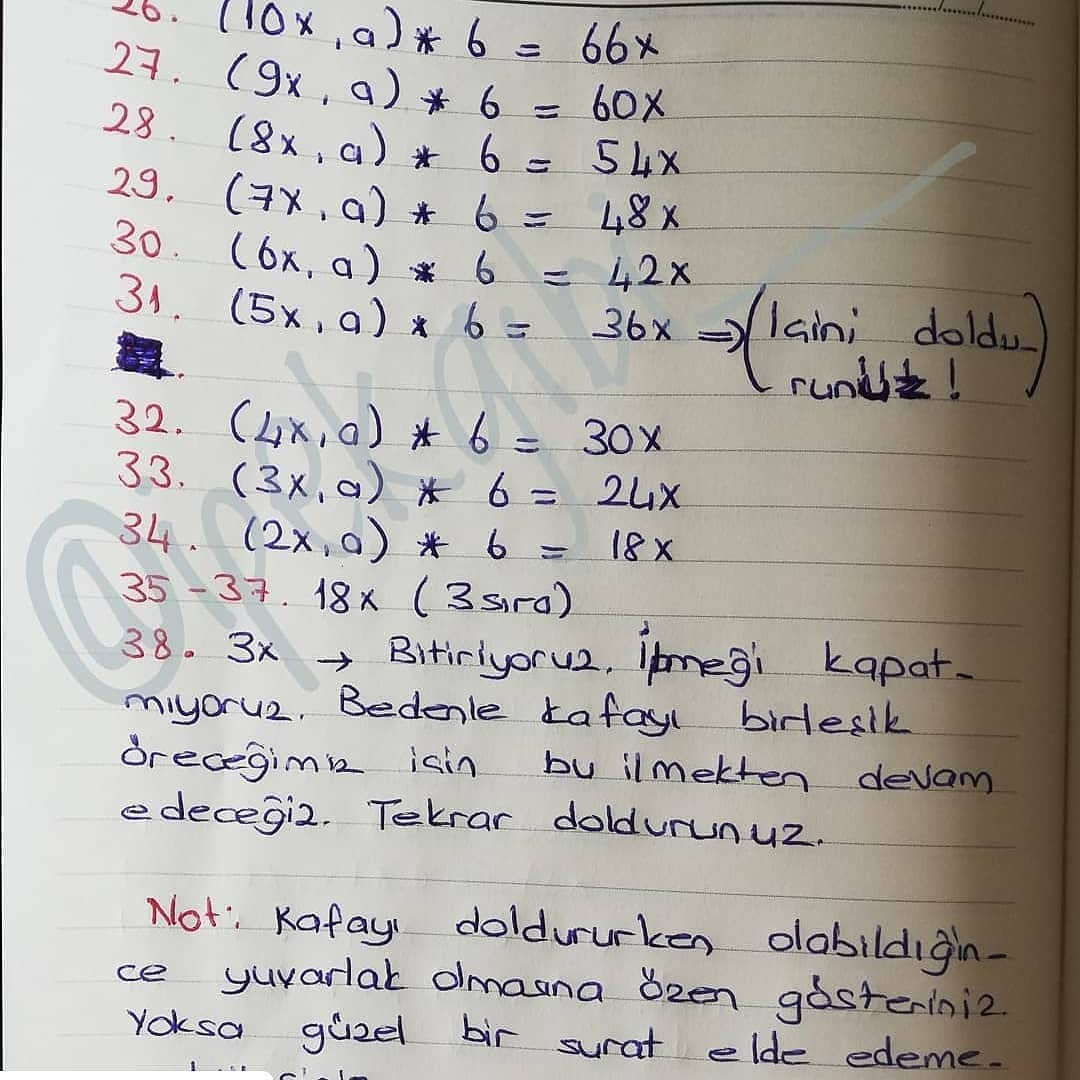 26. (10x, a) * 6 = 66x
27. (9x, a) * 6 = 60x
28. (8x, a) * 6 = 54x
29. (7x, a) * 6 = 48x
30. (6x, a) * 6 = 42x
31. (5x, a) * 6 = 36x => (İçini doldu-
runuz!)
32. (4x, a) * 6 = 30x
33. (3x, a) * 6 = 24x
34. (2x, a) * 6 = 18x
35-37. 18x (3 sıra)
38. 3x → Bitiriyoruz. İpmeği kapat-
mıyoruz. Bedenle kafayı birleşik
öreceğimiz için bu ilmekten devam
edeceğiz. Tekrar doldurunuz.
Not: Kafayı doldururken olabildiğin-
ce yuvarlak olmasına özen gösteriniz.
Yoksa güzel bir surat elde edeme-
@ipekgibi